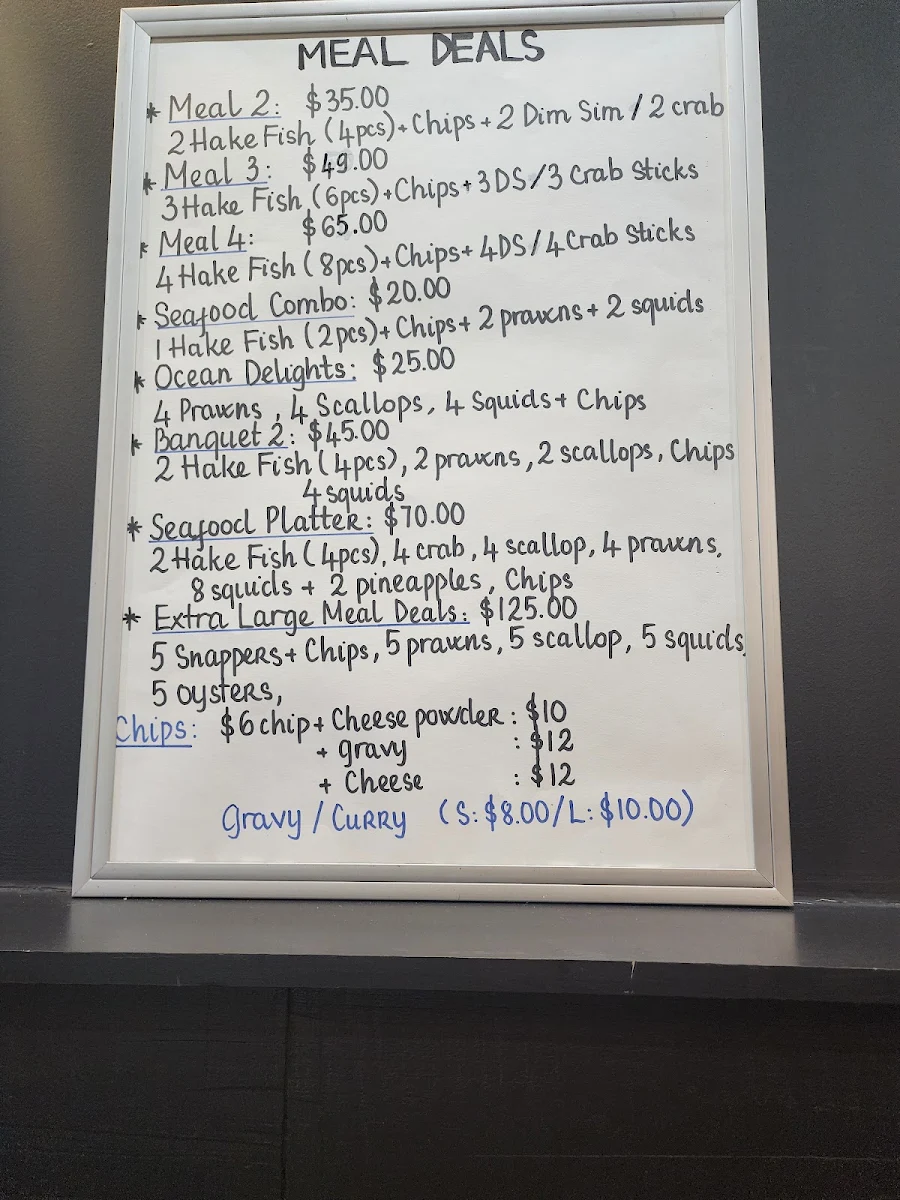 MEAL DEALS
* Meal 2: $35.00
2 Hake Fish (4pcs)+Chips+2 Dim Sim / 2 crab
* Meal 3: $49.00
3 Hake Fish (6pcs)+Chips+3DS/3 Crab Sticks
* Meal 4: $65.00
4 Hake Fish (8pcs)+Chips+4DS/4 Crab Sticks
* Seafood Combo: $20.00
1 Hake Fish (2pcs)+Chips+2 prawns+2 squids
* Ocean Delights: $25.00
4 Prawns, 4 Scallops, 4 Squids+ Chips
* Banquet 2: $45.00
2 Hake Fish (4pcs), 2 prawns, 2 scallops, Chips
4 squids
* Seafood Platter: $70.00
2 Hake Fish (4pcs), 4 crab, 4 scallop, 4 prawns,
8 squids + 2 pineapples, Chips
* Extra Large Meal Deals: $125.00
5 Snappers+ Chips, 5 prawns, 5 scallop, 5 squids,
5 oysters,
Chips: $6 chip+ Cheese powder : $10
+ gravy : $12
+ Cheese : $12
Gravy / Curry (S: $8.00/L: $10.00)